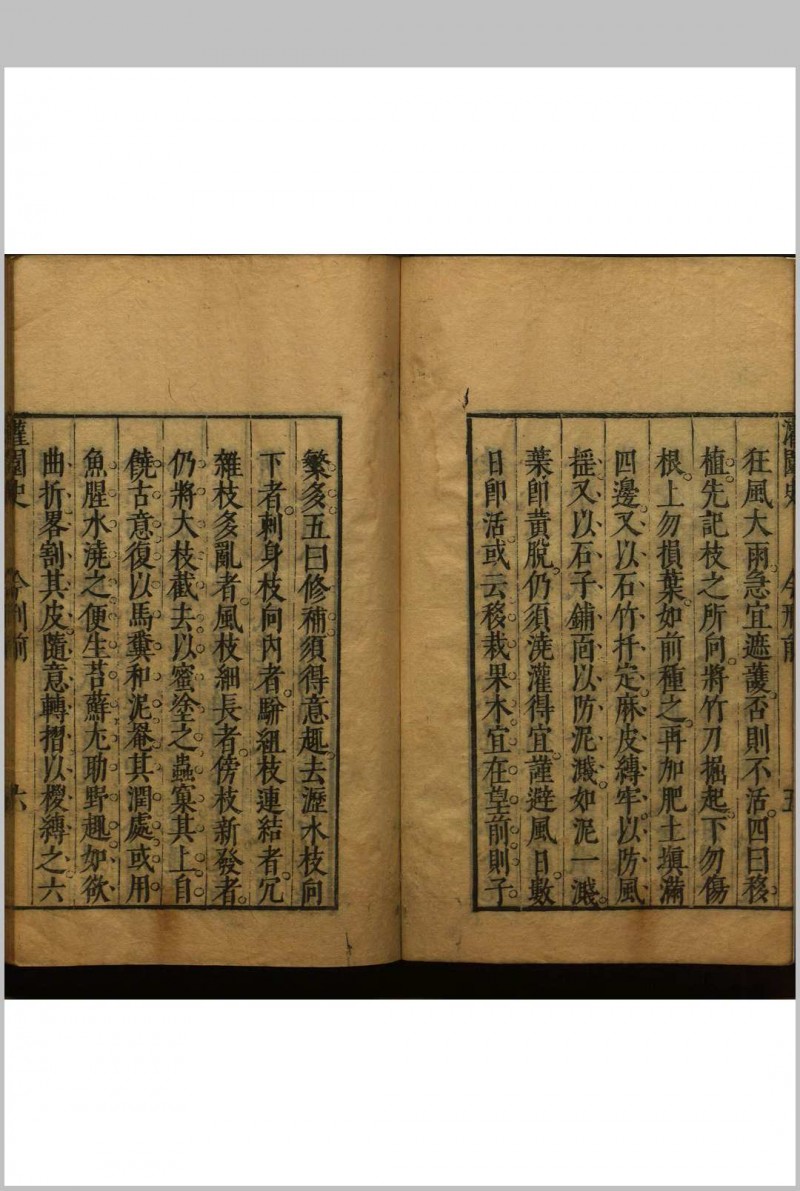 灌園史 今刑前 五
狂風大雨急宜遮護。否則不活。四曰移
植。先記枝之所向。將竹刀掘起。下勿傷
根。上勿損葉。如前種之。再加肥土塡滿
四邊、又以石竹扦定、麻皮縛牢、以防風
搖、又以石子鋪面、以防泥濺、如泥一濺。
葉即黃脫。仍須澆灌得宜。謹避風日。數
日即活。或云移栽果木。宜在望前。則子
繁多。五曰修補。須得意趣。去瀝水枝向
下者。刺身枝向內者。駢紐枝連結者。冗
雜枝多亂者。風枝細長者。傍枝新發者。
仍將大枝截去、以蜜塗之、蟲窠其上、自
饒古意、復以馬糞和泥、罨其潤處、或用
魚腥水澆之、便生苔蘚、尤助野趣、如欲
曲折、畧割其皮、隨意轉摺、以椶縛之、六
灌園史 今刑前 六